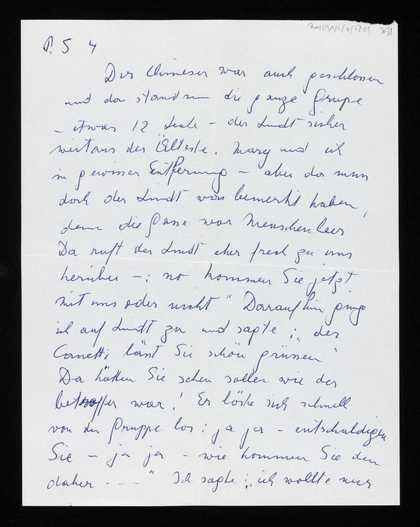 P.S 4
Der Chinese war auch geschlossen
und da stand nun die ganze Gruppe
– etwas 12 Leute – der Lindt sicher
weitaus der Älteste. Mary und ich
in gewisser Entfernung – aber da muss
doch der Lindt was bemerkt haben,
denn die Gasse war Menschenleer
Da ruft der Lindt eher frech zu uns
herüber –: no kommen Sie jetzt
mit uns oder nicht" Daraufhin ging
ich auf Lindt zu und sagte: „der
Canetti lässt Sie schön grüssen"
Da hätten Sie sehen sollen wie der
betroffen war! Er löste sich schnell
von der Gruppe los: ja ja – entschuldigen
Sie – ja ja – wie kommen Sie denn
daher – – – –" Ich sagte: „ich wollte nur